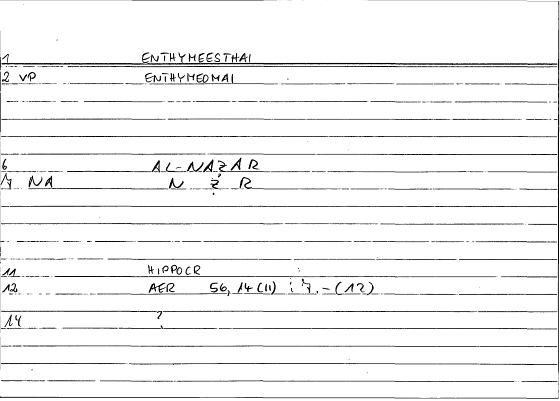 1 ENTHYMEESTHAI
2 VP ENTHYMEOMAI
6 AL-NAẒAR
7 NA N Ẓ R
11 HIPPOCR
12 AER 56, 14 (11) ; 7.-(12)
14 ?